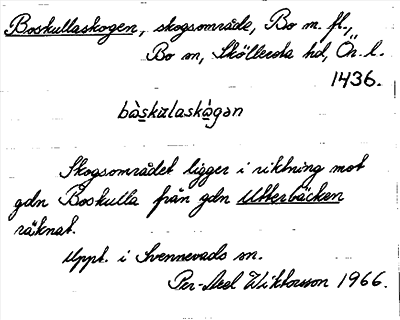 Boskullaskogen, skogsområde, Bo m. fl.,
Bo sn, Sköllersta hd, Ör. l.
1436.
bòskulaskògan
Skogsområdet ligger i riktning mot
gdn Boskulla från gdn Utterbäcken
räknat.
Uppt. i Svennevads sn.
Per-Axel Wiktorsson 1966.